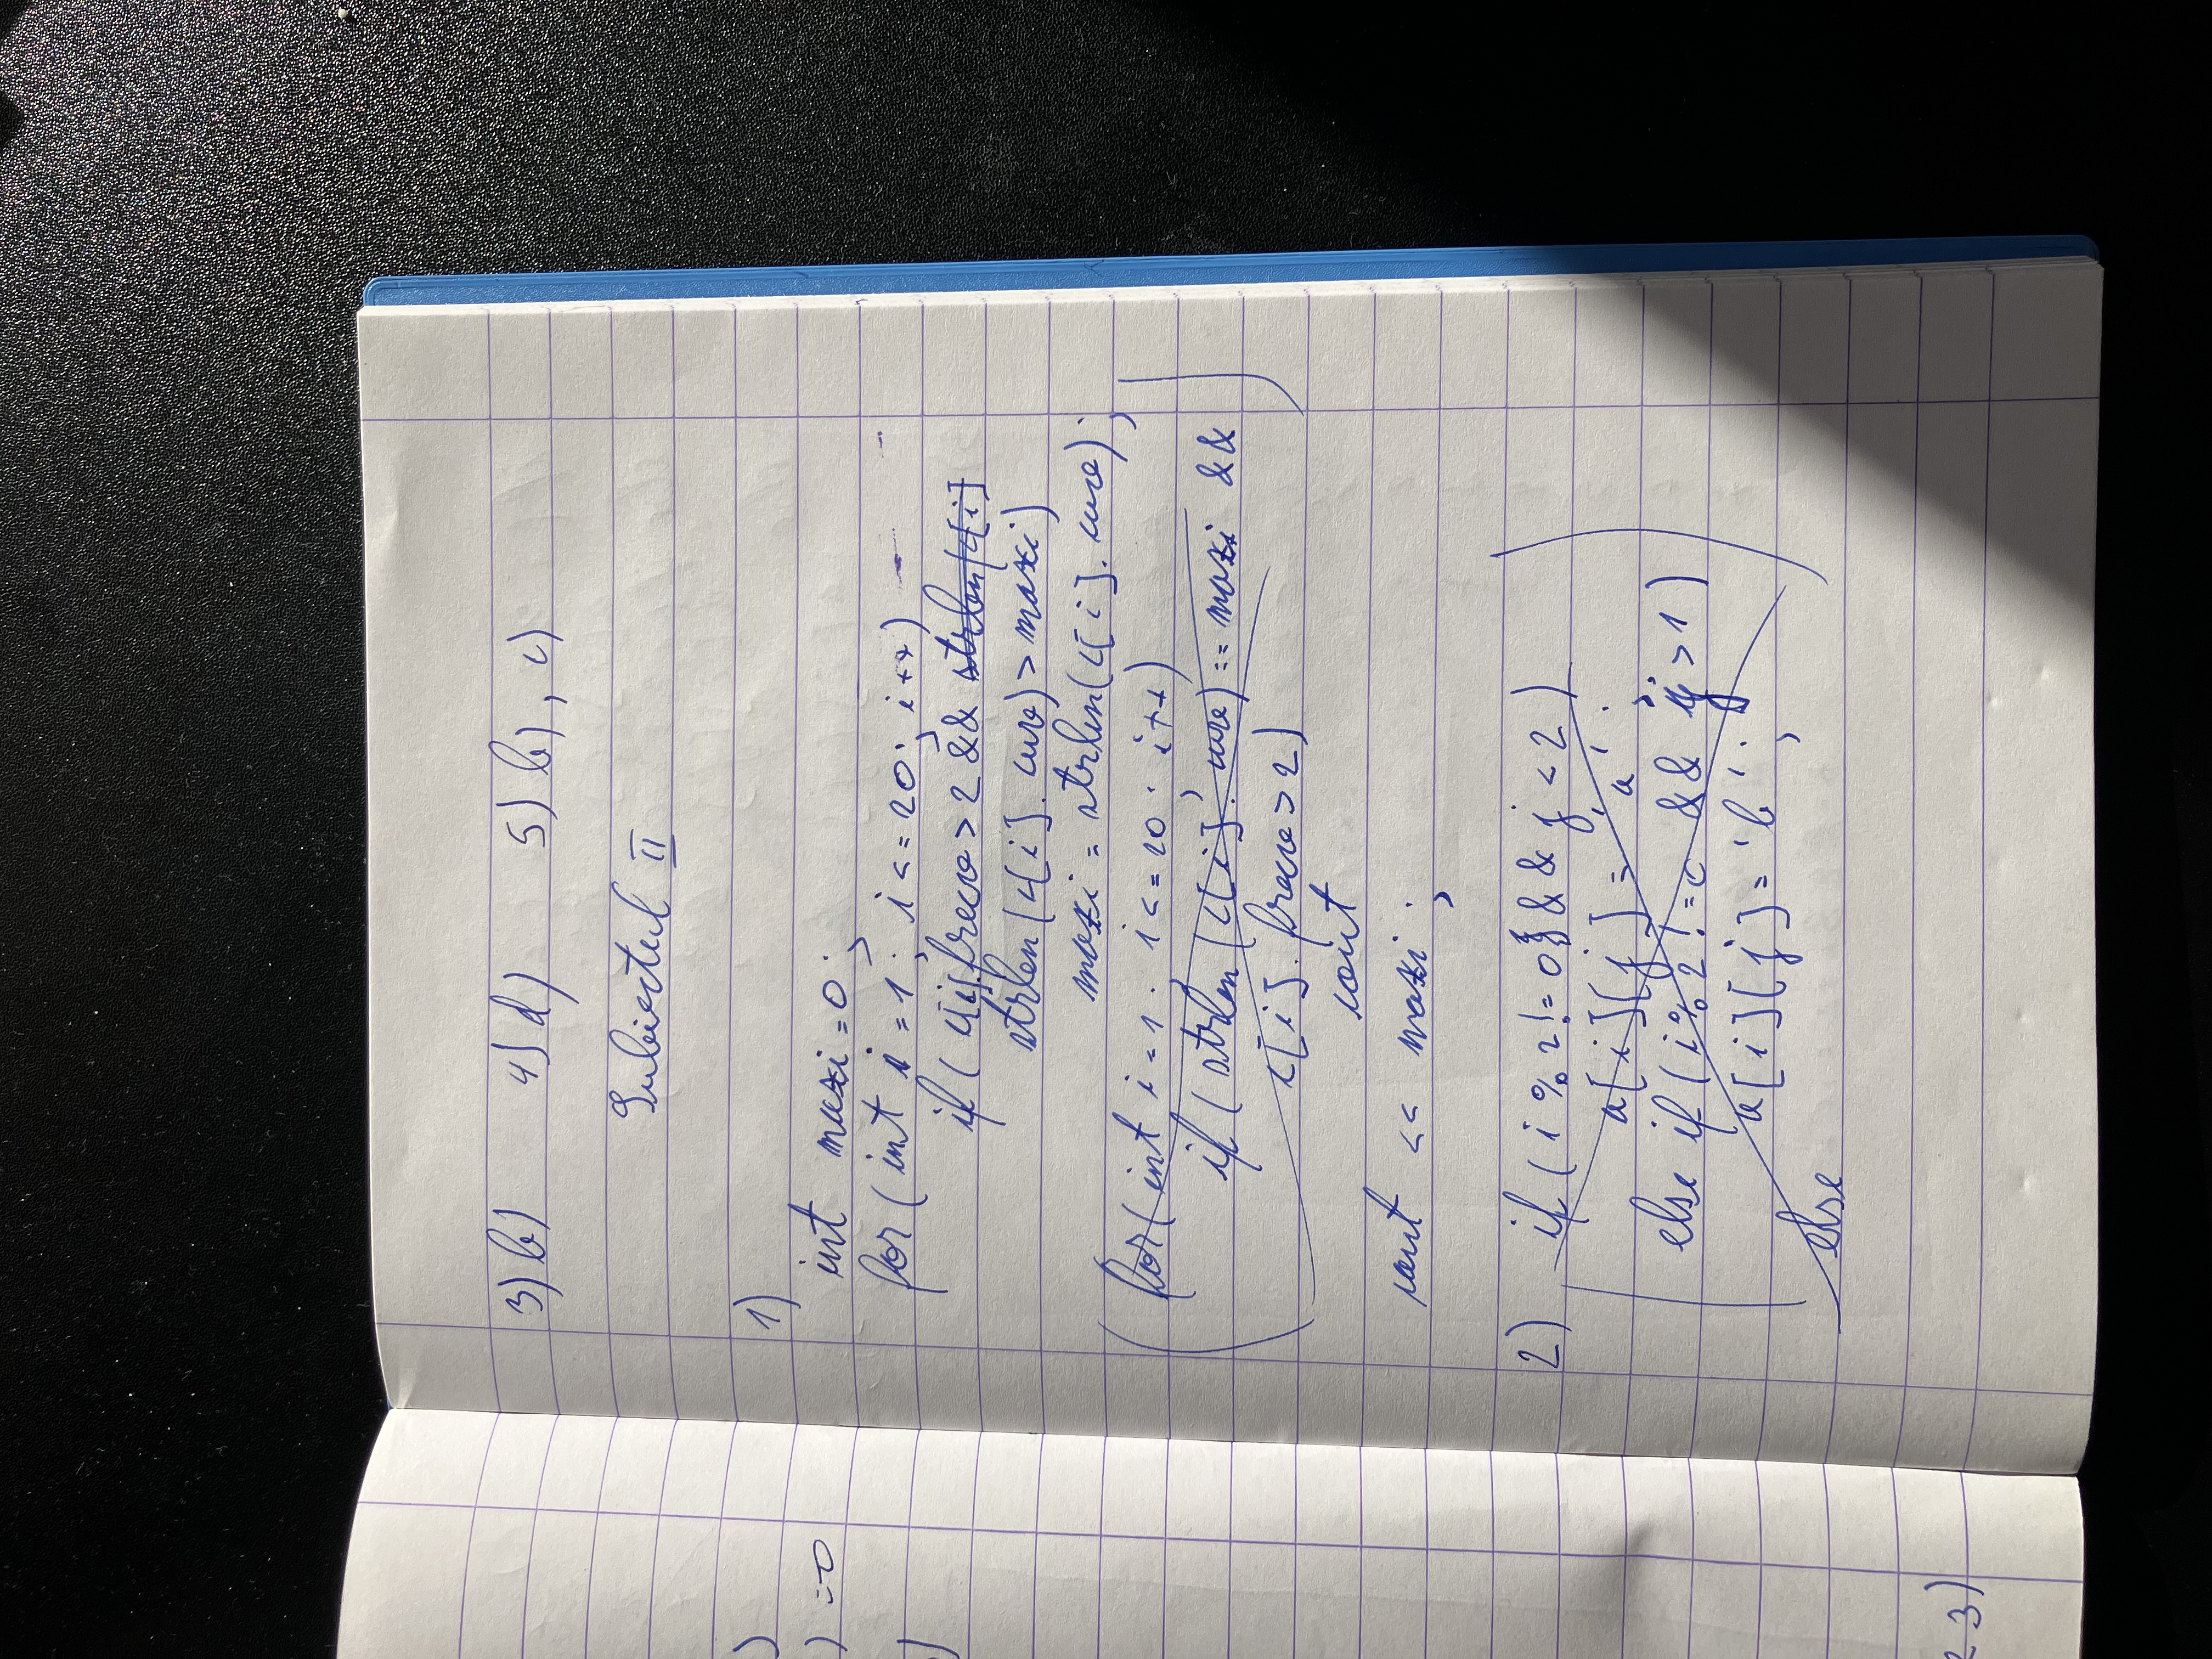 3) b) 4) d) 5) b), c)
Subiectul II
1)
int maxi = 0;
for (int i = 1; i <= 20; i++)
if (c[i].frecv > 2 && strlen(c[i]
strlen(c[i].cuv) > maxi)
maxi = strlen(c[i].cuv);
for (int i = 1; i <= 20; i++)
if (strlen(c[i].cuv) == maxi &&
c[i].frecv > 2)
cout
cout << maxi;
2) if (i % 2 != 0 && j < 2)
a[i][j] = 'a';
else if (i % 2 != 0 && j > 1)
a[i][j] = 'b';
else
)
) = 0
3)